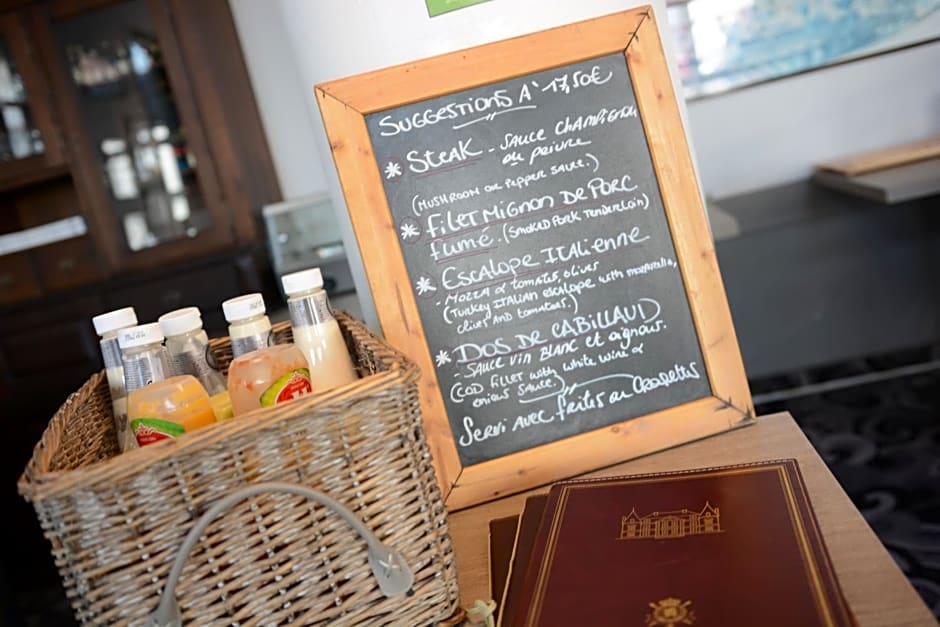 SUGGESTIONS A' 17,50€
* STEAK - SAUCE CHAMPIGNON
ou poivre
(MUSHROOM OR PEPPER SAUCE.)
* FILET MIGNON DE PORC
fumé. (SMOKED PORK TENDERLOIN)
* ESCALOPE ITALIENNE
- MOZZA & tomates, olives
(TURKEY ITALIAN escalope with mozzarella,
olives AND tomatoes.)
* DOS DE CABILLAUD
- SAUCE VIN BLANC et oignons.
(COD fillet with white wine &
onions sauce.)
Servi AVEC frites ou CROQUETTES